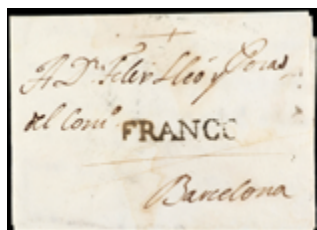 A Dn. Felix Lleó y
del Comº
FRANCO
Barcelona